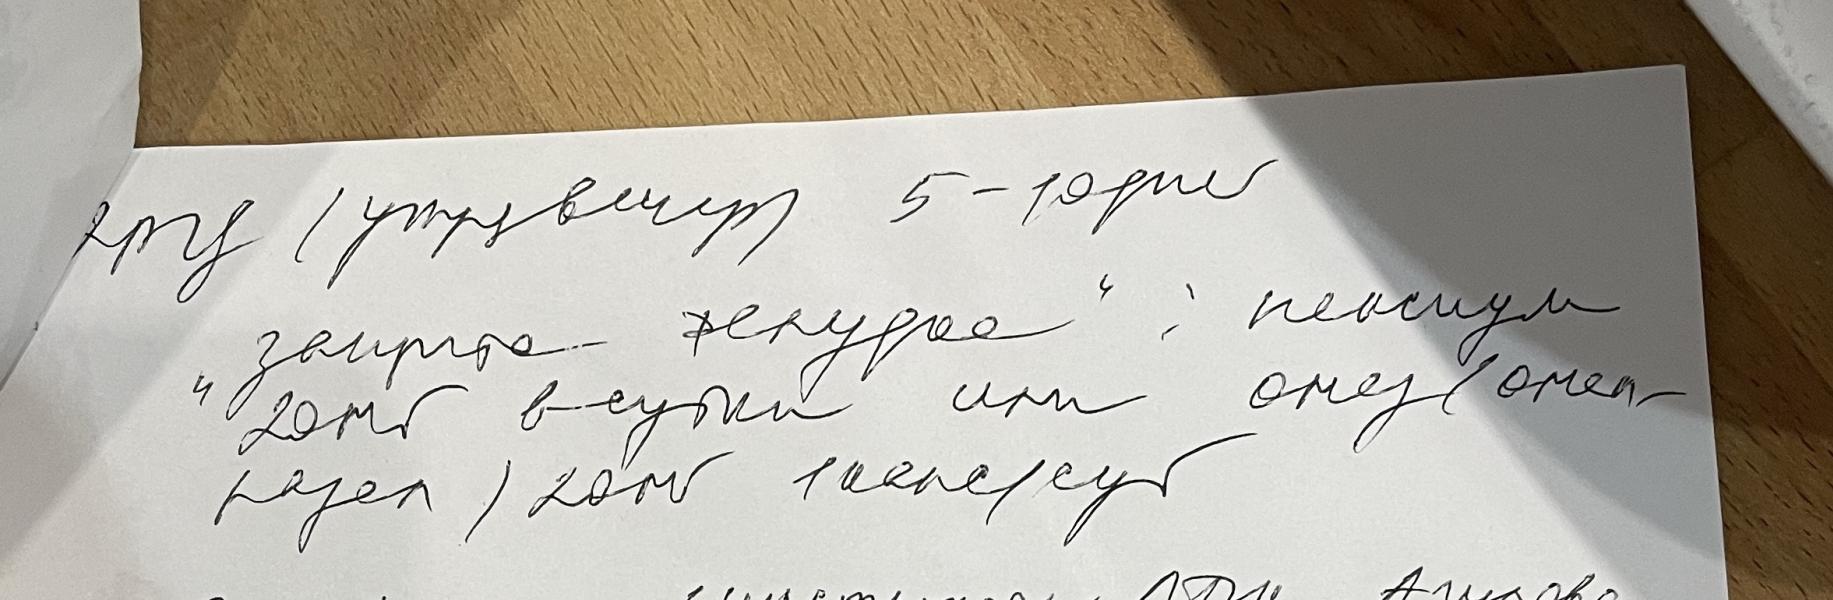 (утро, вечер) 5-10 дней
"защита желудка": нексиум
20мг в сутки или омез (омеп-
разол) 20мг 1 капс/сут
ЛФК